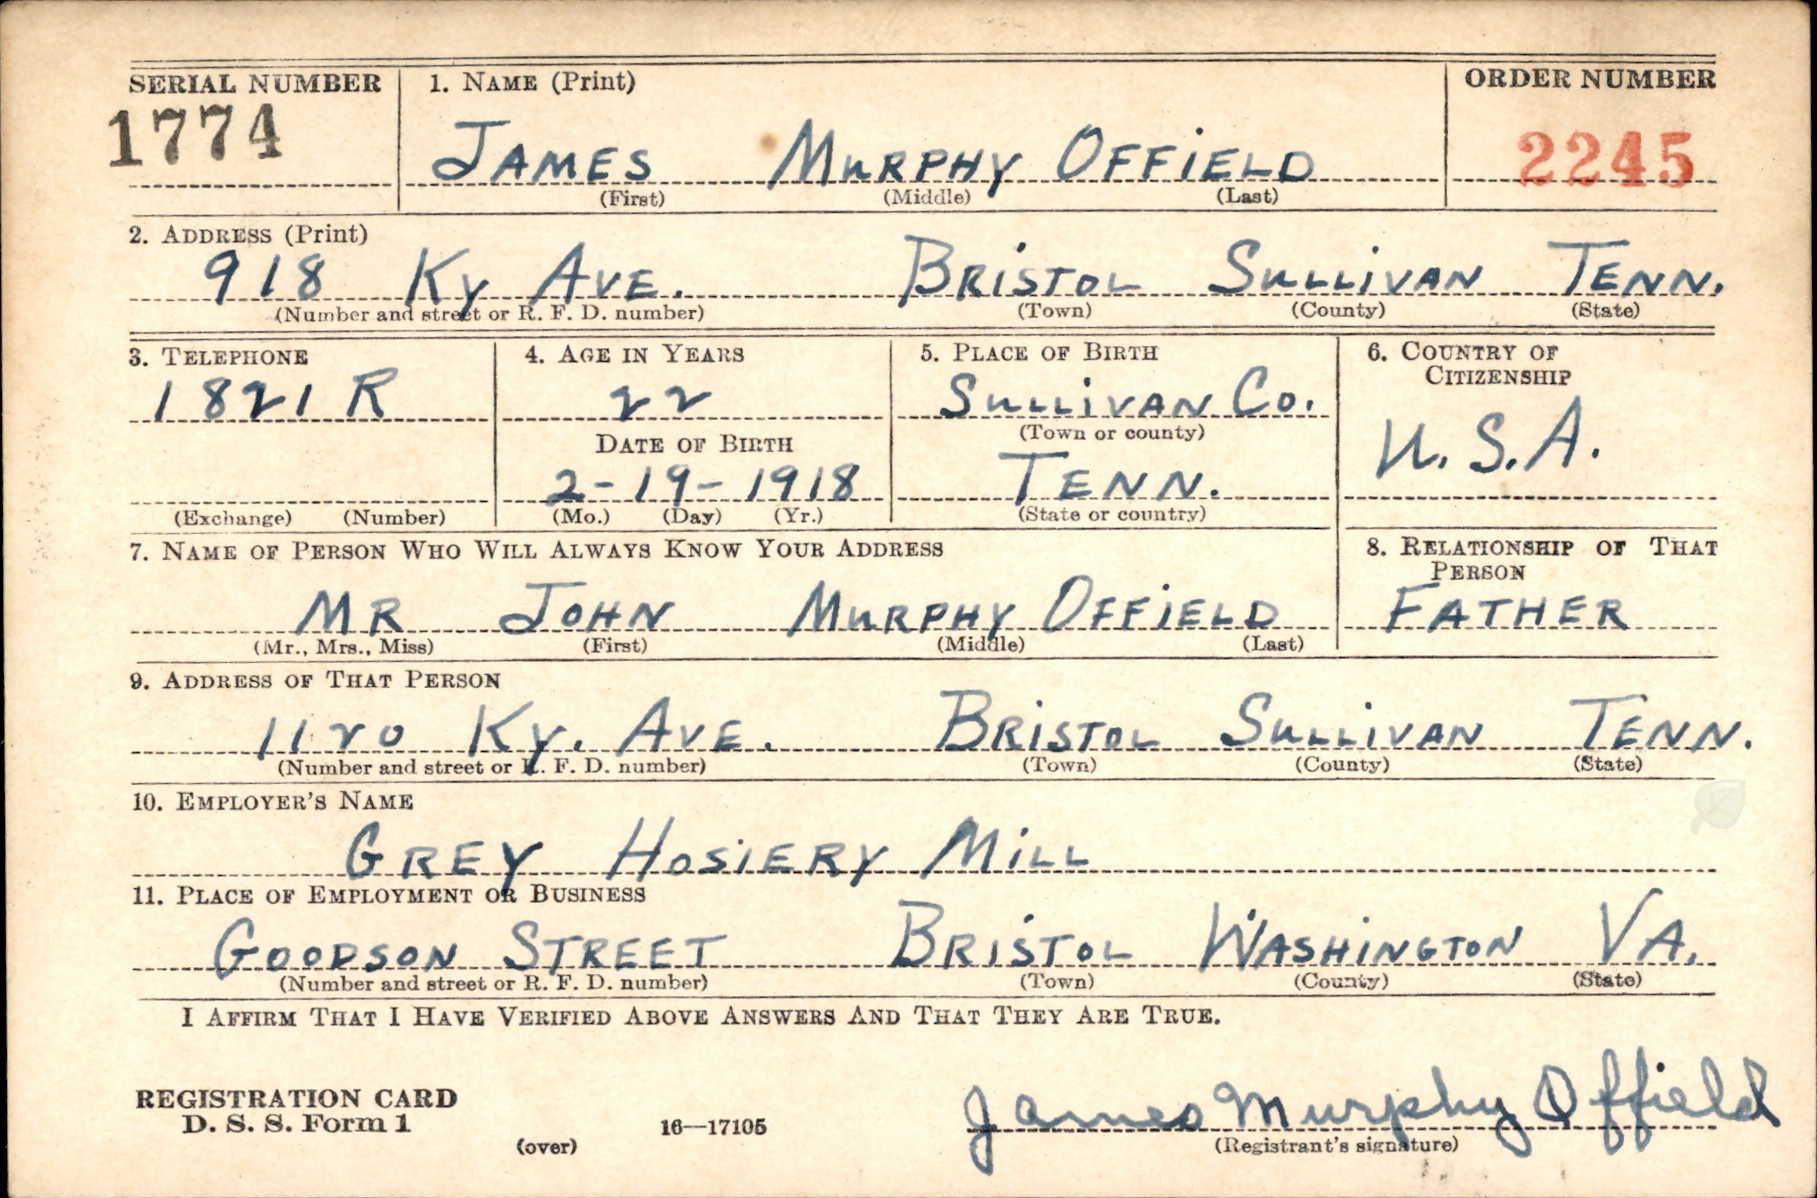 SERIAL NUMBER 1. NAME (Print) ORDER NUMBER
1774 JAMES MURPHY OFFIELD 2245
(First) (Middle) (Last)
2. ADDRESS (Print)
918 Ky AVE. BRISTOL SULLIVAN TENN.
(Number and street or R. F. D. number) (Town) (County) (State)
3. TELEPHONE 4. AGE IN YEARS 5. PLACE OF BIRTH 6. COUNTRY OF
CITIZENSHIP
1821 R 22 SULLIVAN Co.
(Town or county)
DATE OF BIRTH U.S.A.
2-19-1918 TENN.
(Exchange) (Number) (Mo.) (Day) (Yr.) (State or country)
7. NAME OF PERSON WHO WILL ALWAYS KNOW YOUR ADDRESS 8. RELATIONSHIP OF THAT
PERSON
MR JOHN MURPHY OFFIELD FATHER
(Mr., Mrs., Miss) (First) (Middle) (Last)
9. ADDRESS OF THAT PERSON
1120 Ky. AVE. BRISTOL SULLIVAN TENN.
(Number and street or R. F. D. number) (Town) (County) (State)
10. EMPLOYER'S NAME
GREY HOSIERY MILL
11. PLACE OF EMPLOYMENT OR BUSINESS
GOODSON STREET BRISTOL WASHINGTON VA.
(Number and street or R. F. D. number) (Town) (County) (State)
I AFFIRM THAT I HAVE VERIFIED ABOVE ANSWERS AND THAT THEY ARE TRUE.
REGISTRATION CARD
D. S. S. Form 1 16—17105 James Murphy Offield
(over) (Registrant's signature)